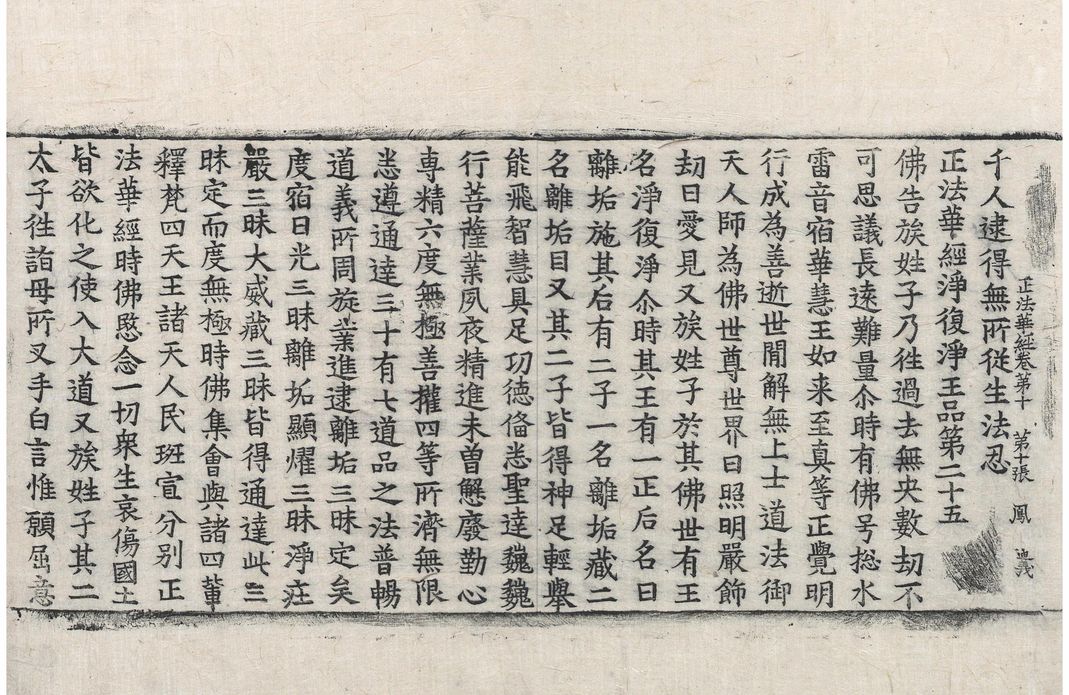 正法華經卷第十　第十張　鳳
千人逮得無所從生法忍
正法華經淨復淨王品第二十五
佛告族姓子乃徃過去無央數劫不
可思議長遠難量尒時有佛号捴水
雷音宿華慧王如来至真等正覺明
行成為善逝世間解無上士道法御
天人師為佛世尊世界曰照明嚴飾
劫曰愛見又族姓子於其佛世有王
名淨復淨尒時其王有一正后名曰
離垢施其后有二子一名離垢藏二
名離垢目又其二子皆得神足輕舉
能飛智慧具足功德俻悉聖達巍巍
行菩薩業夙夜精進未曽懈廢勤心
専精六度無極善攉四等所濟無限
悉遵通達三十有七道品之法普暢
道義所周旋業進逮離垢三昧定矣
度宿日光三昧離垢顯燿三昧淨莊
嚴三昧大威藏三昧皆得通達此三
昧定而度無極時佛集會與諸四輩
釋梵四天王諸天人民班宣分別正
法華經時佛愍念一切衆生哀傷國土
皆欲化之使入大道又族姓子其二
太子徃詣母所叉手白言惟願屈意